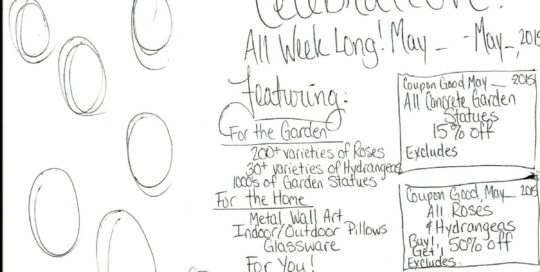 Celebration!
All Week Long! May _ - May_, 2015
Featuring:
For the Garden
200+ varieties of Roses
30+ varieties of Hydrangeas
1000's of Garden Statues
For the Home
Metal Wall Art
Indoor/Outdoor Pillows
Glassware
For You!
Coupon Good May _ 2015
All Concrete Garden
Statues
15% off
Excludes
Coupon Good, May_ 2015
All Roses
& Hydrangeas
Buy 1,
Get 1 50% off
Excludes